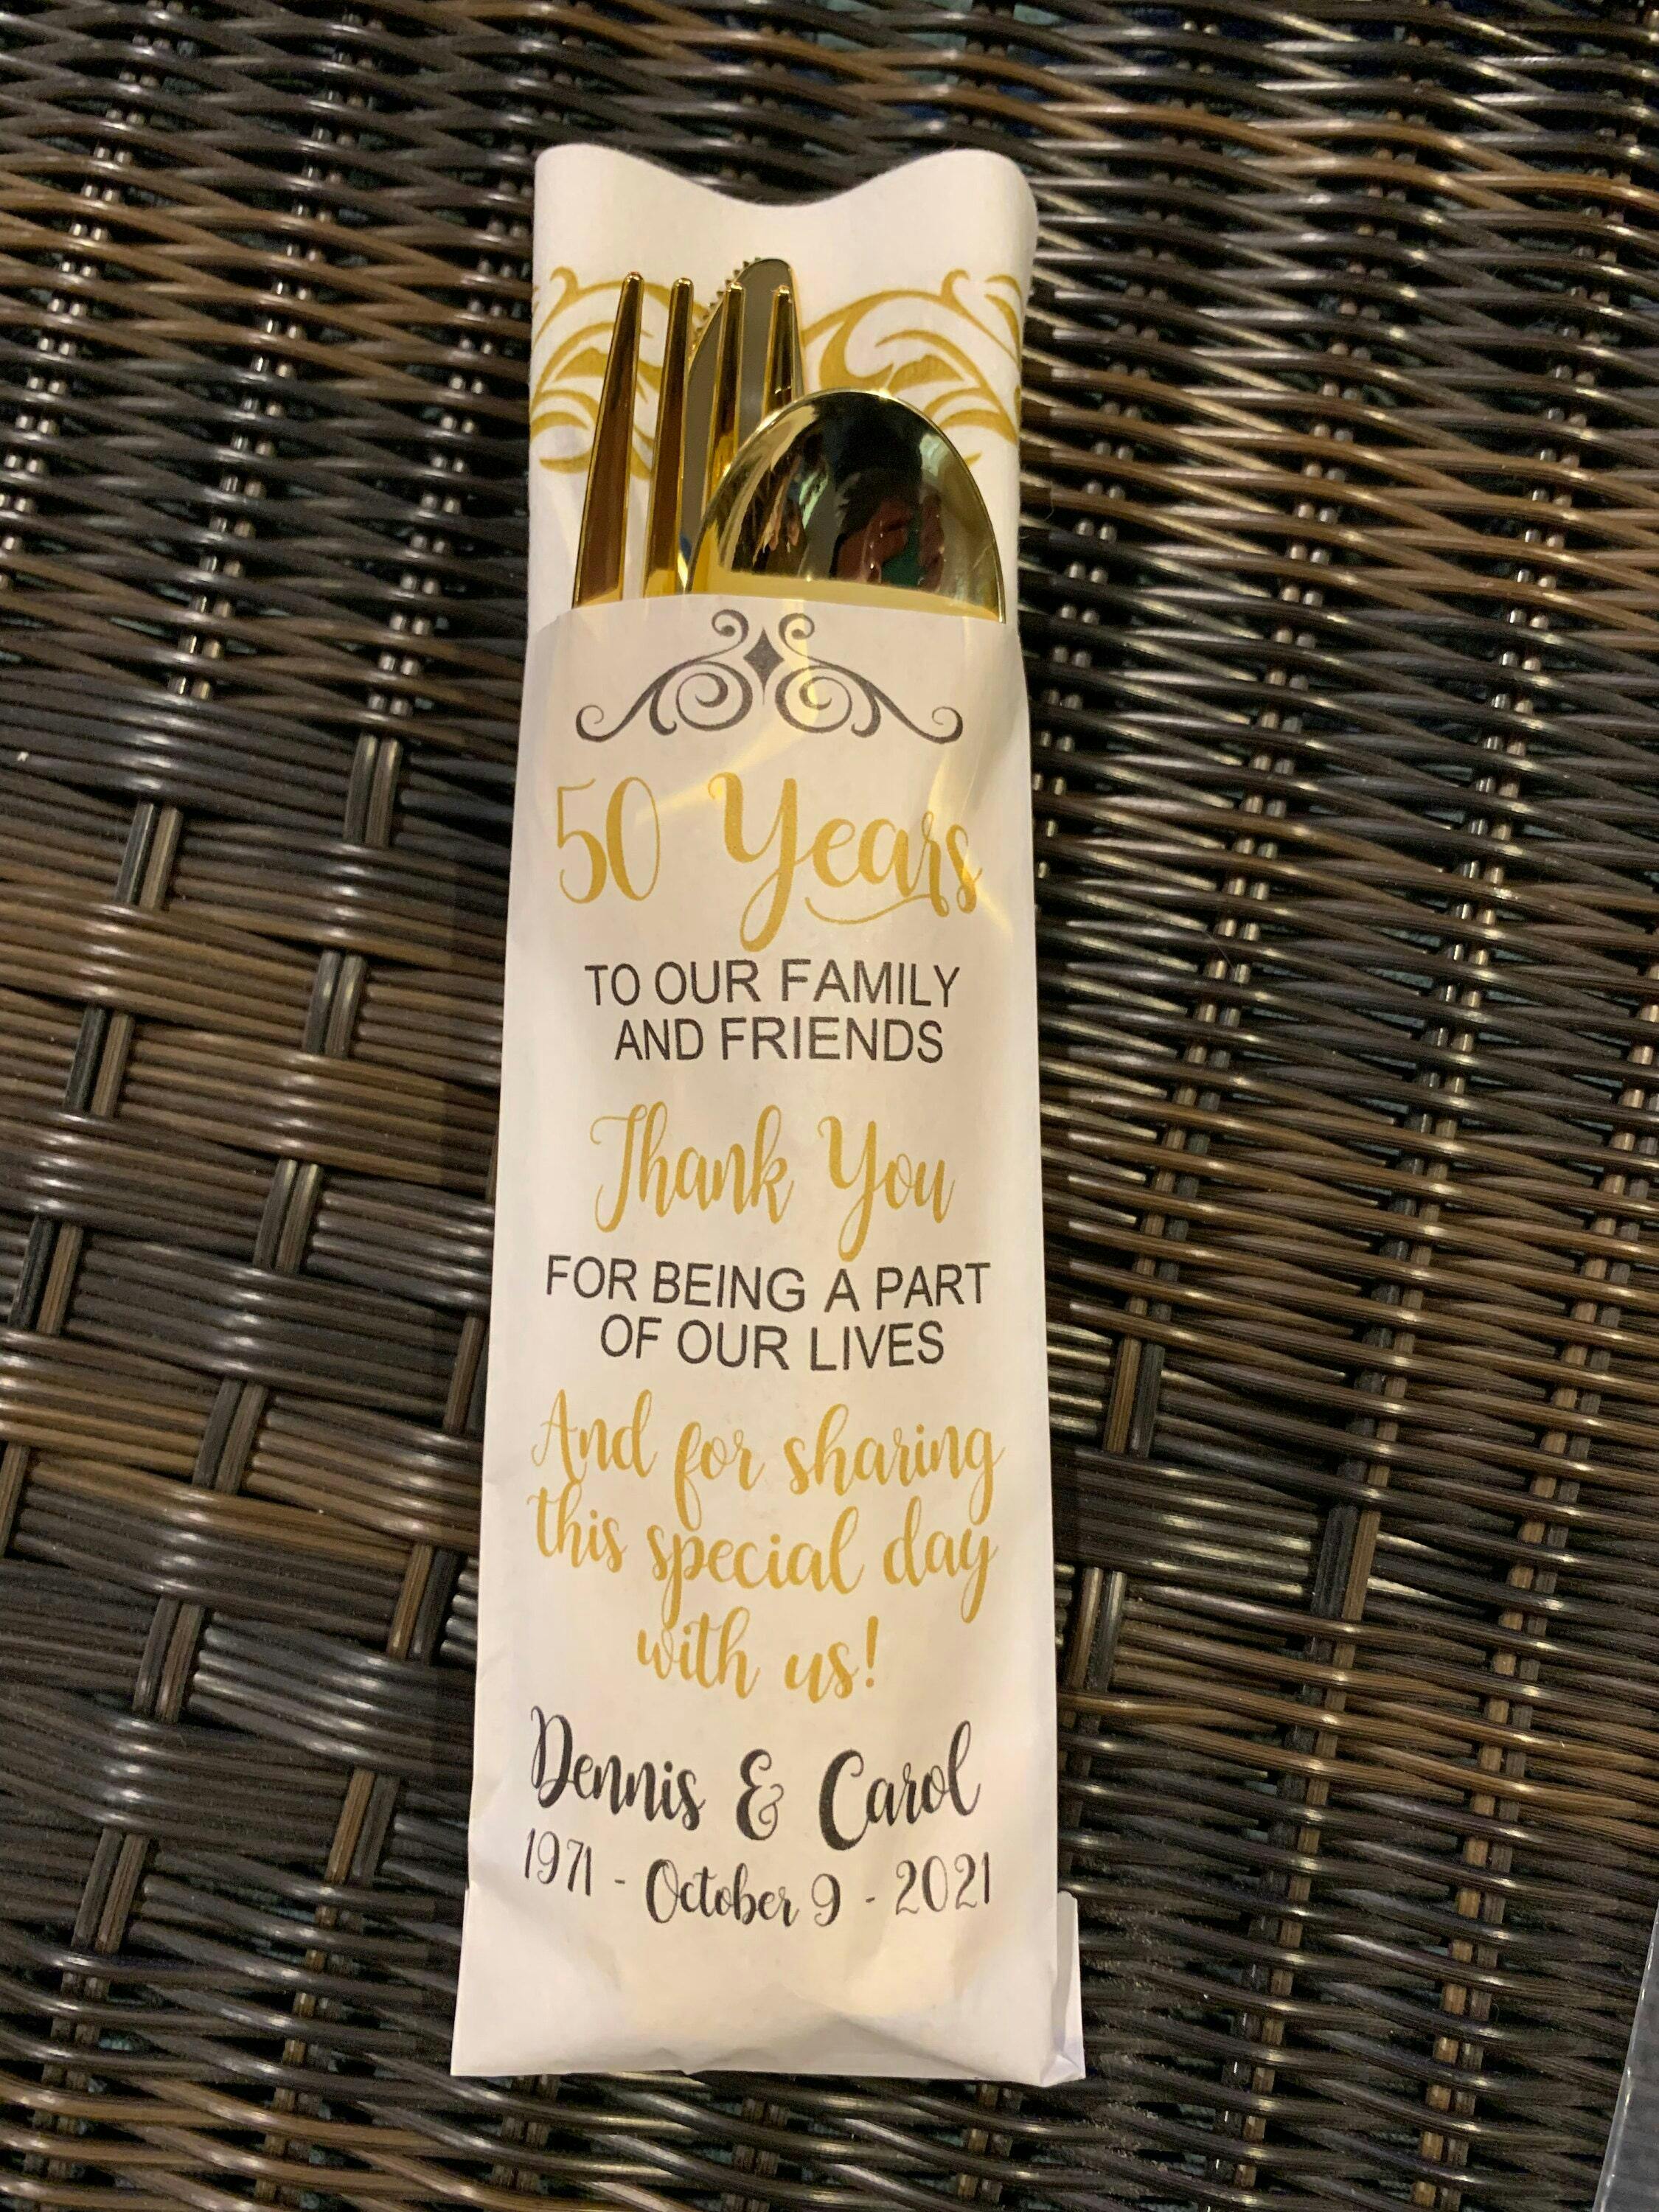 50 Years
TO OUR FAMILY
AND FRIENDS
Thank You
FOR BEING A PART
OF OUR LIVES
And for sharing
this special day
with us!
Dennis & Carol
1971 - October 9 - 2021